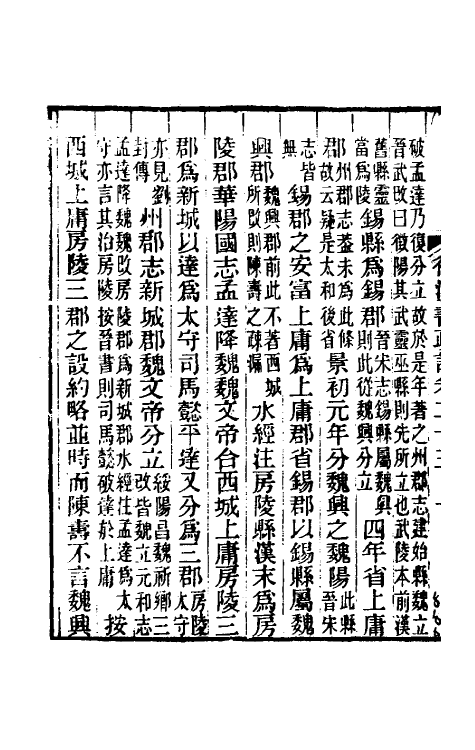 破孟達乃復分立故於是年著之州郡志建始縣魏立
晉武改曰
陽其武靈巫縣則先所立也武陵本前漢
舊縣靈
當爲陵
錫縣爲錫郡
晉宋志錫縣屬魏興
郡則此從魏興分立
四年省上庸
郡州郡志蓋未爲此條
郡故云疑是太和後省
景初元年分魏興之魏陽
此縣
晉宋
志皆
無
錫郡之安富上庸爲上庸郡省錫郡以錫縣屬魏
興郡
魏興郡前此不著西城
所改則陳壽之疎漏
水經注房陵縣漢末爲房
陵郡華陽國志孟達降魏魏文帝合西城上庸房陵三
郡爲新城以達爲太守司馬懿平達又分爲三郡
房陵
太守
亦見劉
封傳
州郡志新城郡魏文帝分立
綏陽昌魏祁鄉三
改皆魏立元和志
孟達降魏魏改房陵郡爲新城郡水經注孟達爲太
守亦言其治房陵按晉書則司馬懿破達於上庸
按
西城上庸房陵三郡之設約略並時而陳壽不言魏興